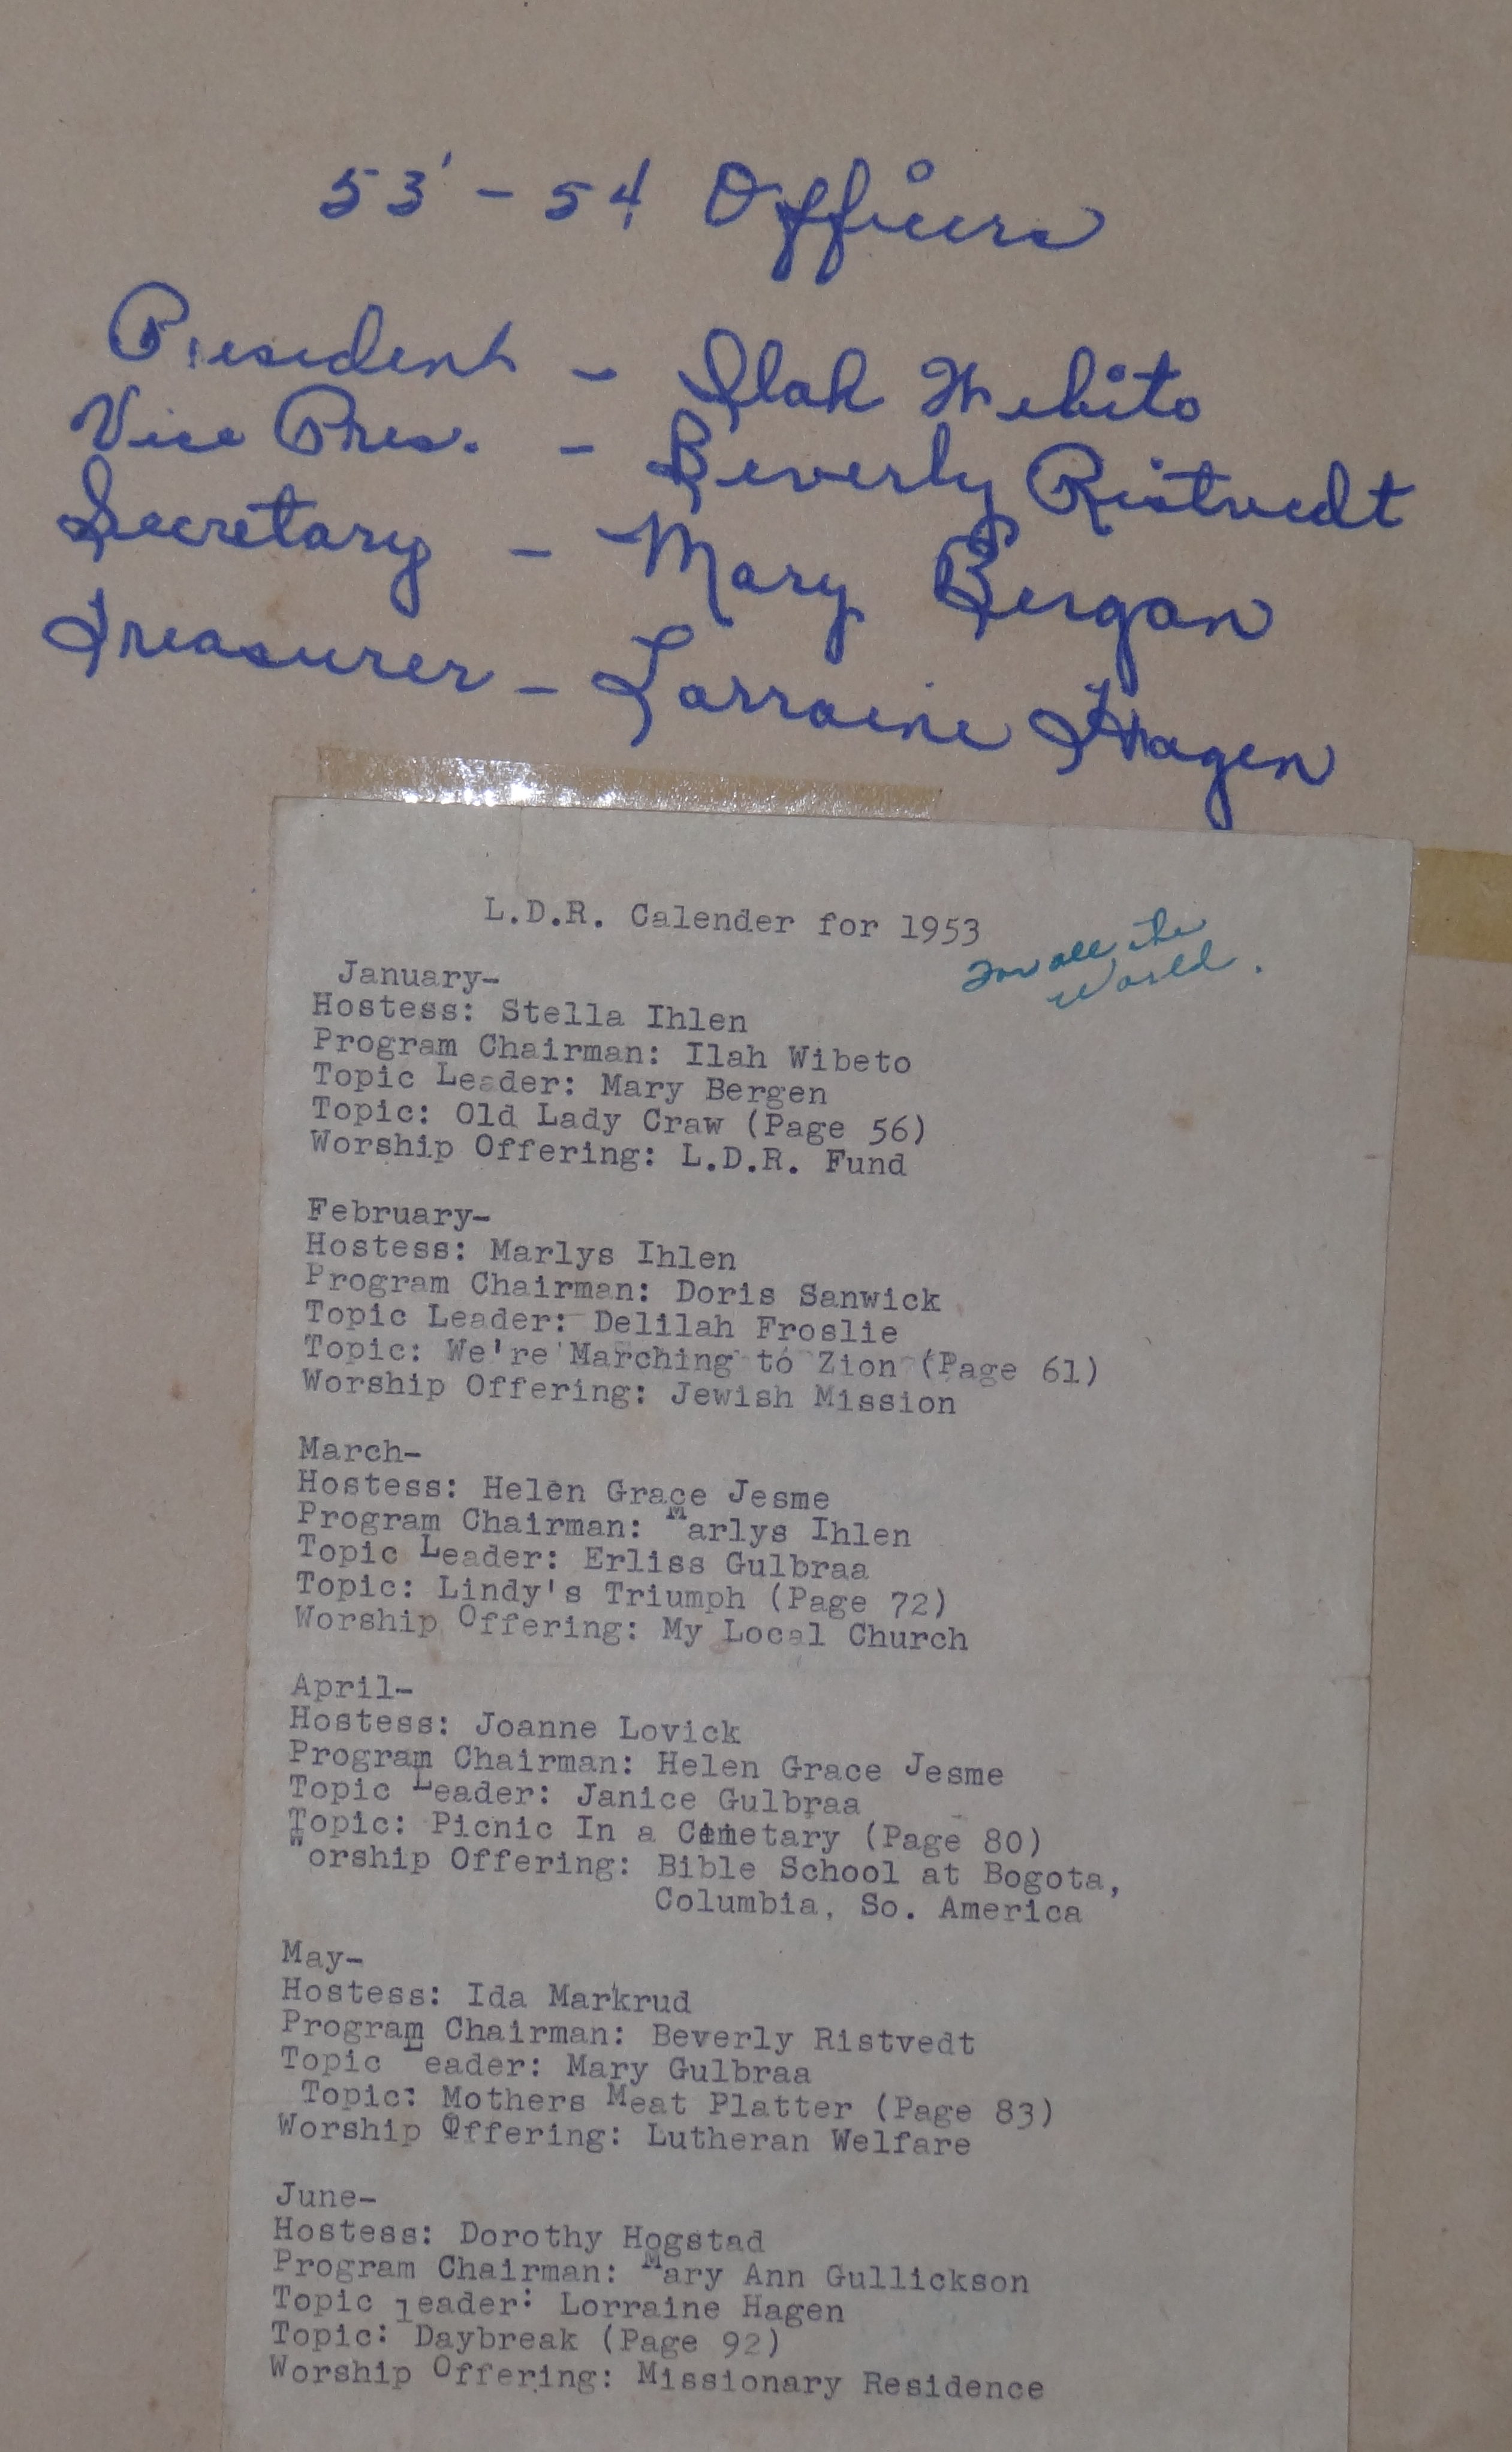 53' - 54 Officers
President - Ilah Wibeto
Vice Pres. - Beverly Ristvedt
Secretary - Mary Bergan
Treasurer - Lorraine Hagen
L.D.R. Calender for 1953
For all the
World.
January-
Hostess: Stella Ihlen
Program Chairman: Ilah Wibeto
Topic Leader: Mary Bergen
Topic: Old Lady Craw (Page 56)
Worship Offering: L.D.R. Fund
February-
Hostess: Marlys Ihlen
Program Chairman: Doris Sanwick
Topic Leader: Delilah Froslie
Topic: We're Marching to Zion (Page 61)
Worship Offering: Jewish Mission
March-
Hostess: Helen Grace Jesme
Program Chairman: Marlys Ihlen
Topic Leader: Erliss Gulbraa
Topic: Lindy's Triumph (Page 72)
Worship Offering: My Local Church
April-
Hostess: Joanne Lovick
Program Chairman: Helen Grace Jesme
Topic Leader: Janice Gulbraa
Topic: Picnic In a Cemetary (Page 80)
Worship Offering: Bible School at Bogota,
Columbia, So. America
May-
Hostess: Ida Markrud
Program Chairman: Beverly Ristvedt
Topic Leader: Mary Gulbraa
Topic: Mothers Meat Platter (Page 83)
Worship Offering: Lutheran Welfare
June-
Hostess: Dorothy Hogstad
Program Chairman: Mary Ann Gullickson
Topic leader: Lorraine Hagen
Topic: Daybreak (Page 92)
Worship Offering: Missionary Residence